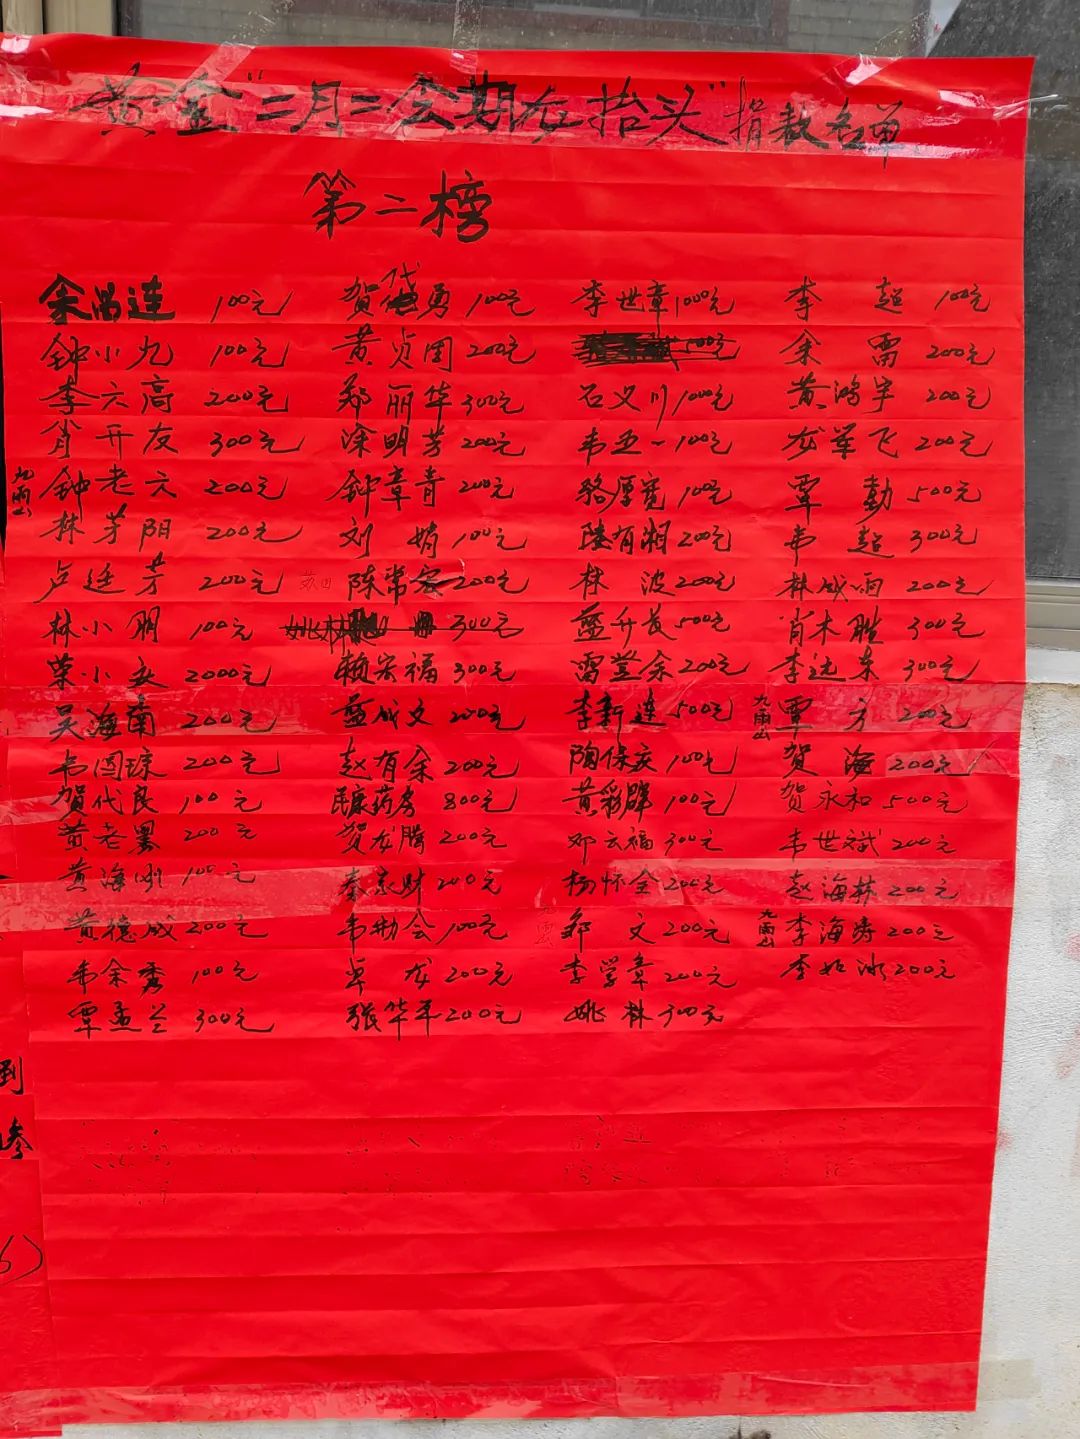 黄金"二月二会期龙抬头"捐款名单
第二榜
余昌连 100元 贺代勇 100元 李世章 1000元 李超 100元
钟小九 100元 黄贞团 200元 余雷 200元
李六高 200元 郑丽华 300元 石义川 100元 黄鸿宇 200元
肖开友 300元 涂明芳 200元 韦五一 100元 龙华飞 200元
九雨山 钟老六 200元 钟章青 200元 骆厚宽 100元 覃勤 500元
林芳阳 200元 刘娟 100元 陆有湘 200元 韦超 300元
卢廷芳 200元 陈常容 200元 林波 200元 林成雨 200元
林小朋 100元 姚林 300元 蓝开良 500元 肖木胜 300元
荣小妹 2000元 赖宏福 300元 雷堂余 200元 李远东 300元
吴海南 200元 蓝成文 200元 李新连 500元 九雨山 覃方 200元
韦国琼 200元 赵有余 200元 陶保孩 100元 贺海 200元
贺代良 100元 民康药房 800元 黄彩群 100元 贺永和 500元
黄老黑 200元 贺龙腾 200元 邓云福 300元 韦世斌 200元
黄海刚 100元 秦家财 200元 杨怀全 200元 赵海林 200元
黄德成 200元 韦勒会 100元 九雨山 邹文 200元 九雨山 李海涛 200元
韦余秀 100元 覃龙 200元 李学章 200元 李如冰 200元
覃孟兰 300元 张华军 200元 姚林 300元
到